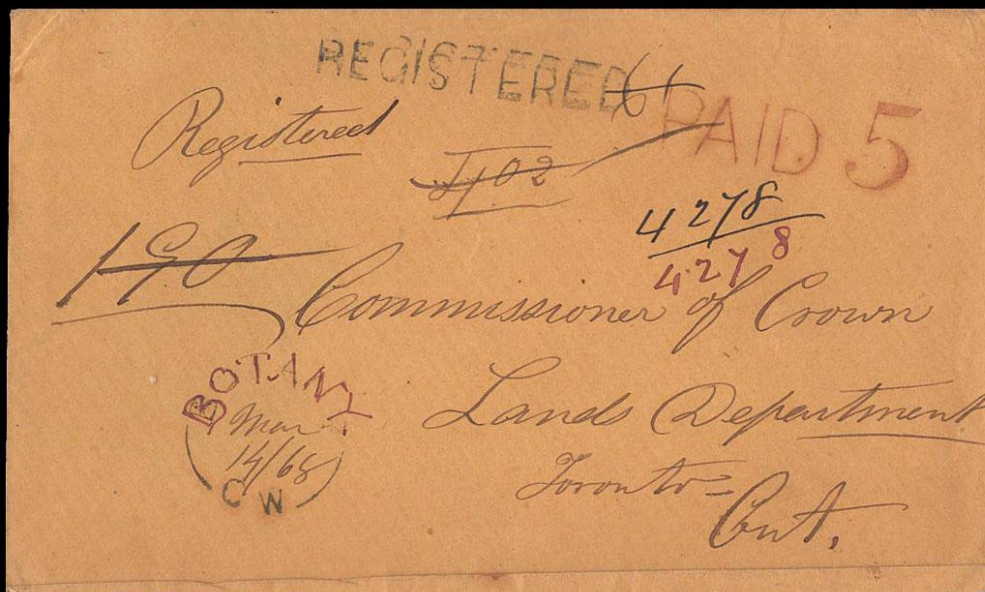 REGISTERED
PAID 5
Registered
4278
4278
190
Commissioner of Crown
Lands Department
Toronto =
Ont.
BOTANY
Mar
14/68
C W